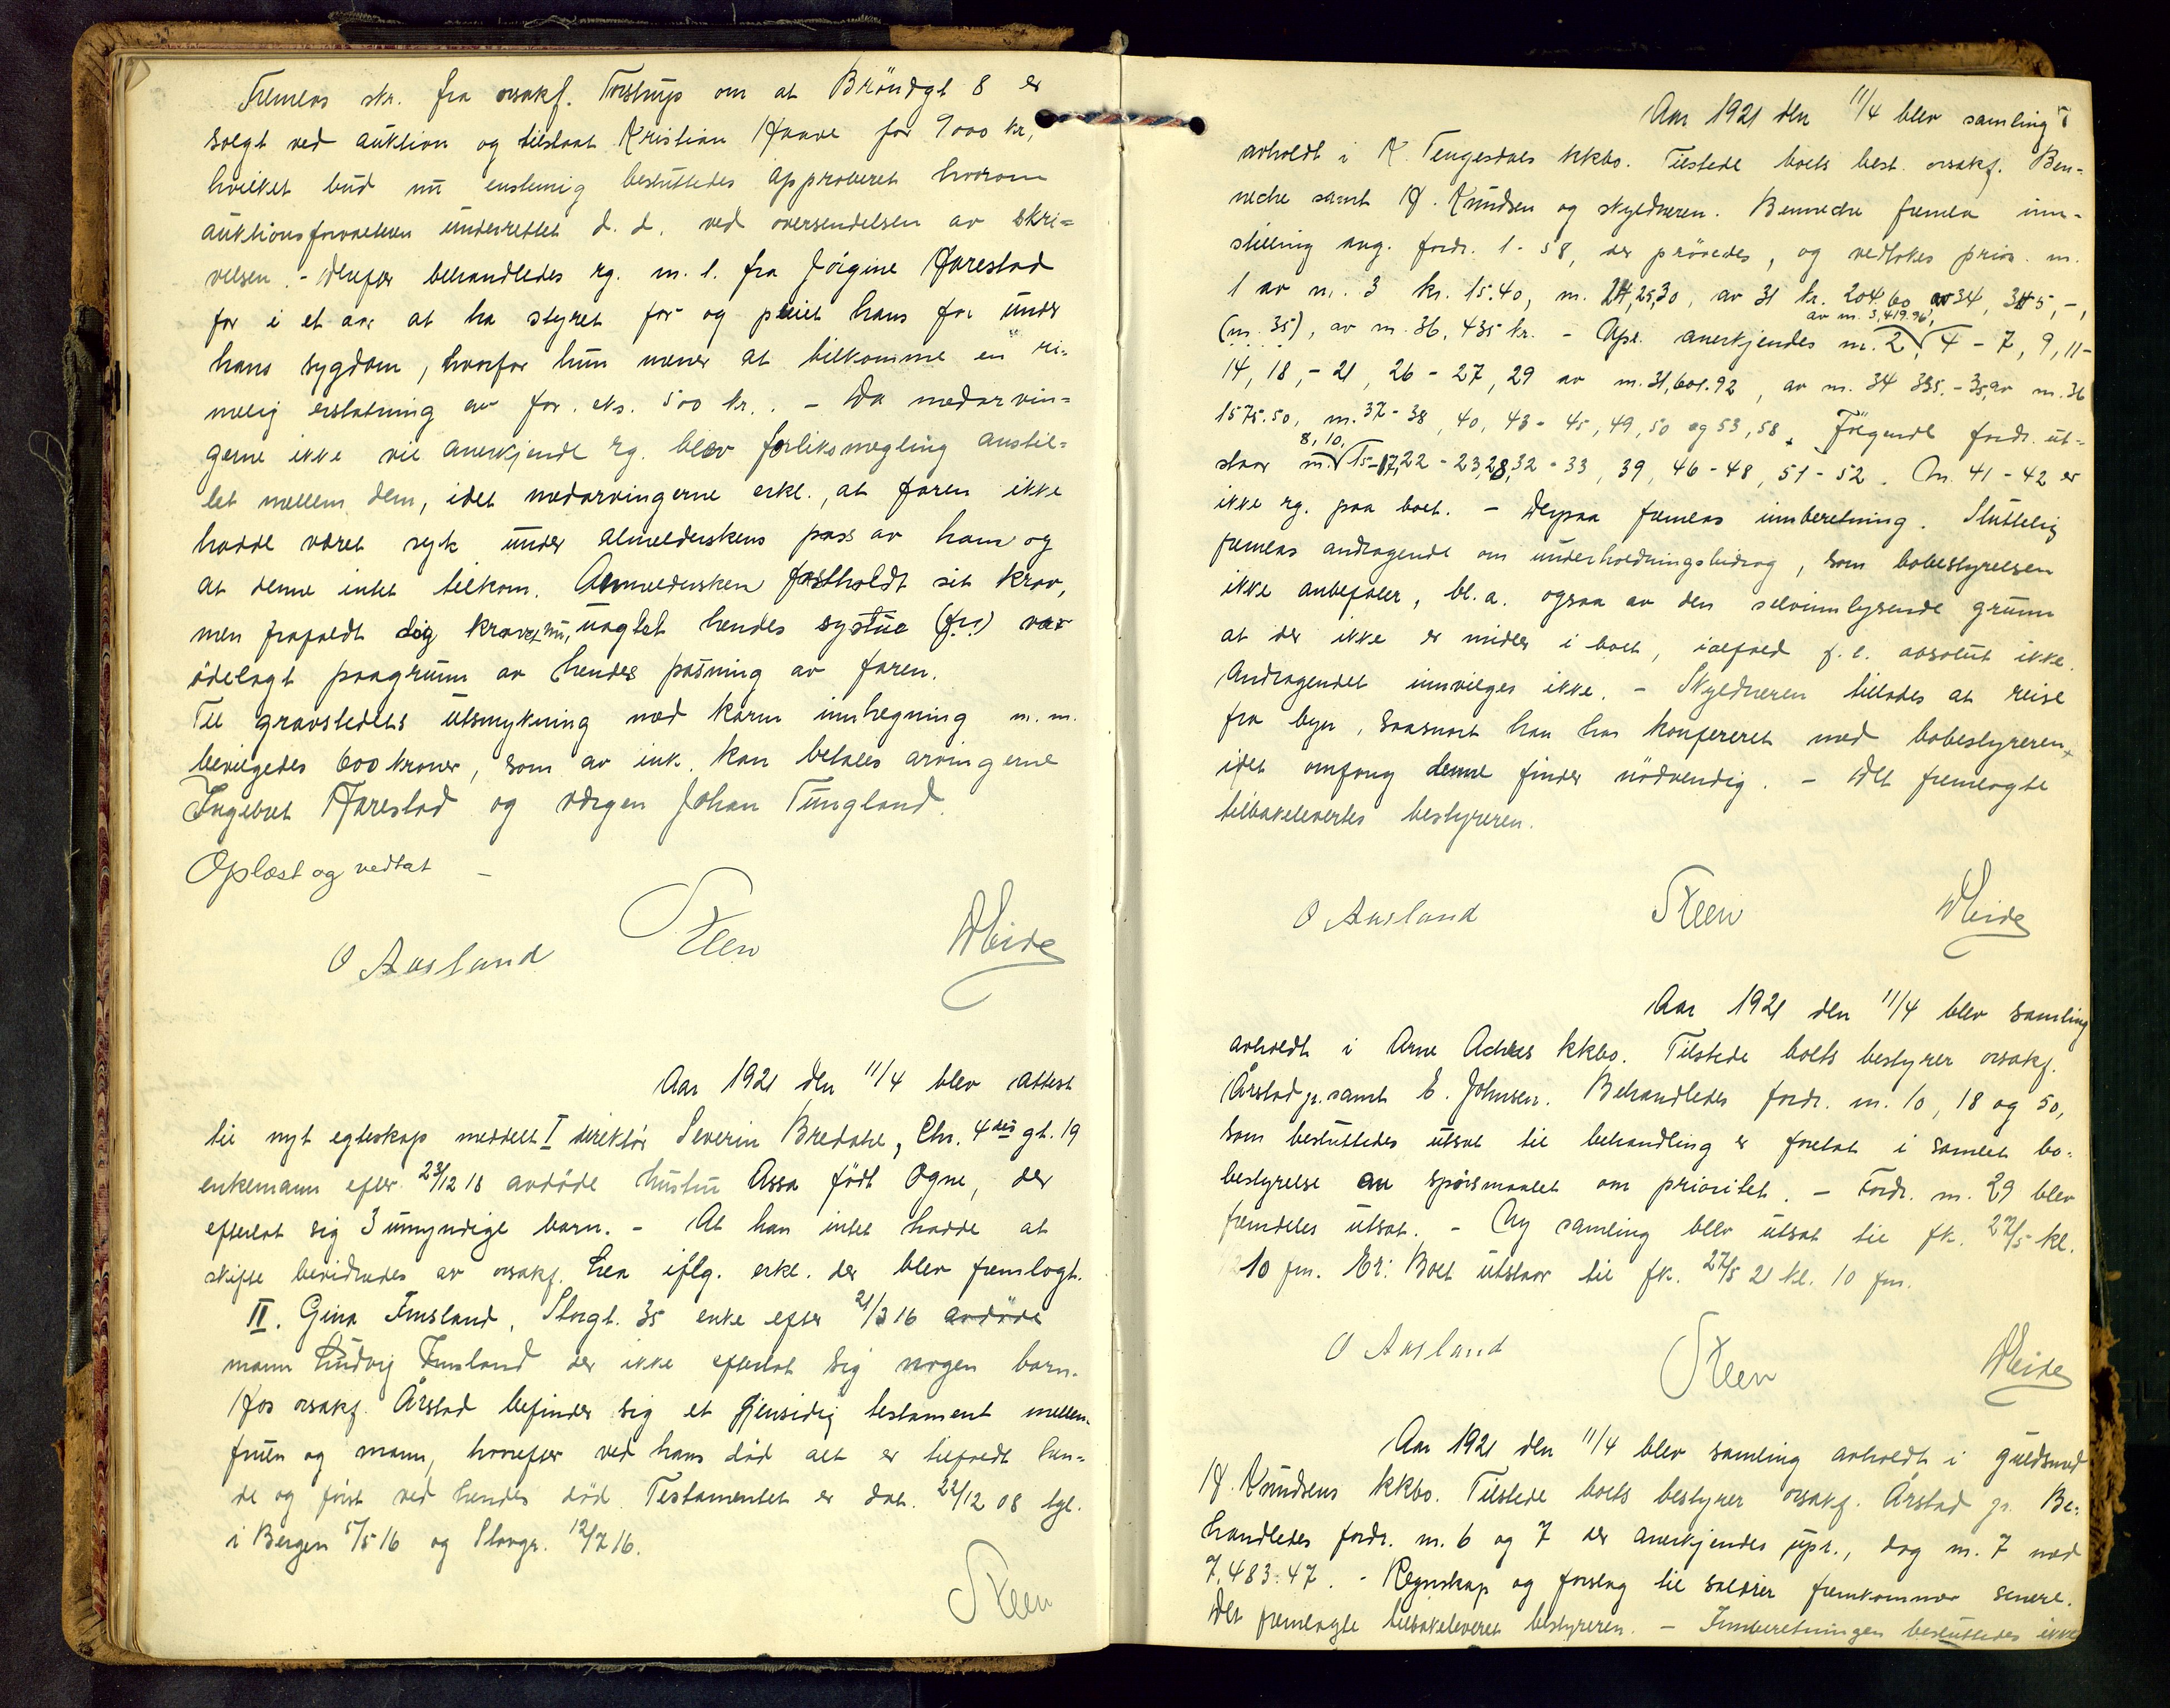 Fremlas skr. fra orsakf. Torstrup om at Bröndgt 8 er
solgt ved auktion og tilslaat Kristian Haave for 9000 kr,
hvilket bud nu enstemig besluttedes approberet hvorom
auktionsforvalteren underrettet d. d. ved oversendelsen av skri=
velsen. - Derefter behandledes rg. m. 1. fra Jörgine Harestad
for i et aar at ha styret for og pleiet hans far under
hans sygdom, hvorfor hun mener at tilkomme en ri=
melig erstatning av for. eks. 500 kr.. - Da medarvin=
gerne ikke vil anerkjende rg. blev forliksmegling anstil=
let mellem dem, idet medarvingerne erkl., at faren ikke
hadde været syk under anmelderskens pass av ham og
at denne intet tilkom. Anmeldersken fastholdt sit krav,
men frafaldt dog kravet nu, uagtet hendes systue (fra) var
ödelagt paagrunn av hendes pasning av faren.
Til gravstedets utsmykning med karm innhegning m. m.
bevilgedes 600 kroner, som av ink. kan betales arvingerne
Ingebret Harestad og vergen Johan Tungland.
Oplæst og vedtat -
O Aasland Steen Weide
Aar 1921 den 11/4 blev attest
til nyt egteskap meddelt I direktör Severin Bredahl, Chr. 4des gt. 19
enkemann efter 23/12 18 avdöde hustru Assa födt Ogne, der
efterlot sig 3 umyndige barn. - At han intet hadde at
skifte bevidnedes av orsakf. Lea iflg. erkl. der blev fremlagt.
II. Gina Imsland, Storgt. 35 enke efter 21/3 16 avdöde
mann Ludvig Imsland der ikke efterlot sig nogen barn.
Hos orsakf. Årstad befinder sig et gjensidig testament mellem
fruen og mann, hvorefter ved hans död alt er tilfaldt hen=
de og först ved hendes död. Testamentet er dat. 22/12 08 tgl.
i Bergen 5/5 16 og Stavgr. 12/7 16.
Steen
Aar 1921 den 11/4 blev samling
avholdt i K. Tengesdals kkbo. Tilstede boets best. orsakf. Ben=
neche samt H. Knudsen og skyldneren. Benneche fremla inn=
stilling ang. fordr. 1 - 58, der prövedes, og vedtokes prior. m.
1 av nr. 3 kr. 15.40, m. 24, 25, 30, av 31 kr. 204.60, av 34, 345,-,
(m. 35), av m. 36, 435 kr. - Upr. anerkjendes m. 2, av m. 3, 419.96, 4 - 7, 9, 11-
14, 18, - 21, 26 - 27, 29 av m. 31, 601.92, av m. 34 335.- 35, av m. 36
1575.50, m. 37 - 38, 40, 43 - 45, 49, 50 og 53, 58. Fölgende fordr. ut=
staar m. 8, 10, 15-17, 22 - 23, 28, 32 - 33, 39, 46 - 48, 51 - 52. Nr. 41 - 42 er
ikke rg. paa boet. - Derpaa fremlas innberetning. Sluttelig
fremlas andragende om underholdningsbidrag, som bobestyrelsen
ikke anbefaler, bl. a. ogsaa av den selvinnlysende grunn
at der ikke er midler i boet, ialfald f. t. absolut ikke.
Andragendet innvilges ikke. - Skyldneren tillodes at reise
fra byen, saasnart han har konfereret med bobestyreren
i det omfang denne finder nödvendig. - Det fremlagte
tilbakelevertes bestyreren.
O Aasland Steen Weide
Aar 1921 den 11/4 blev samling
avholdt i Arne Achres kkbo. Tilstede boets bestyrer orsakf.
Årstad jr. samt E. Johnsen. Behandledes fordr. m. 10, 18 og 50,
som besluttedes utsat til behandling er foretat i samlet bo=
bestyrelse av spörsmaalet om prioritet. - Fordr. m. 29 blev
fremdeles utsat. - Ny samling blev utsat til fk. 27/5 kl.
10 fm. Er: Boet utstaar til fk. 27/5 21 kl. 10 fm.
O Aasland Steen Weide
Aar 1921 den 11/4 blev samling avholdt i guldsmed
H. Knudsens kkbo. Tilstede boets bestyrer orsakf. Årstad jr. Be=
handledes fordr. m. 6 og 7 der anerkjendes upr., dog m. 7 med
7.483.47. - Regnskap og forslag til salærer fremkommer senere.
Det fremlagte tilbakeleveret bestyreren. - Innberetningen besluttedes ikke